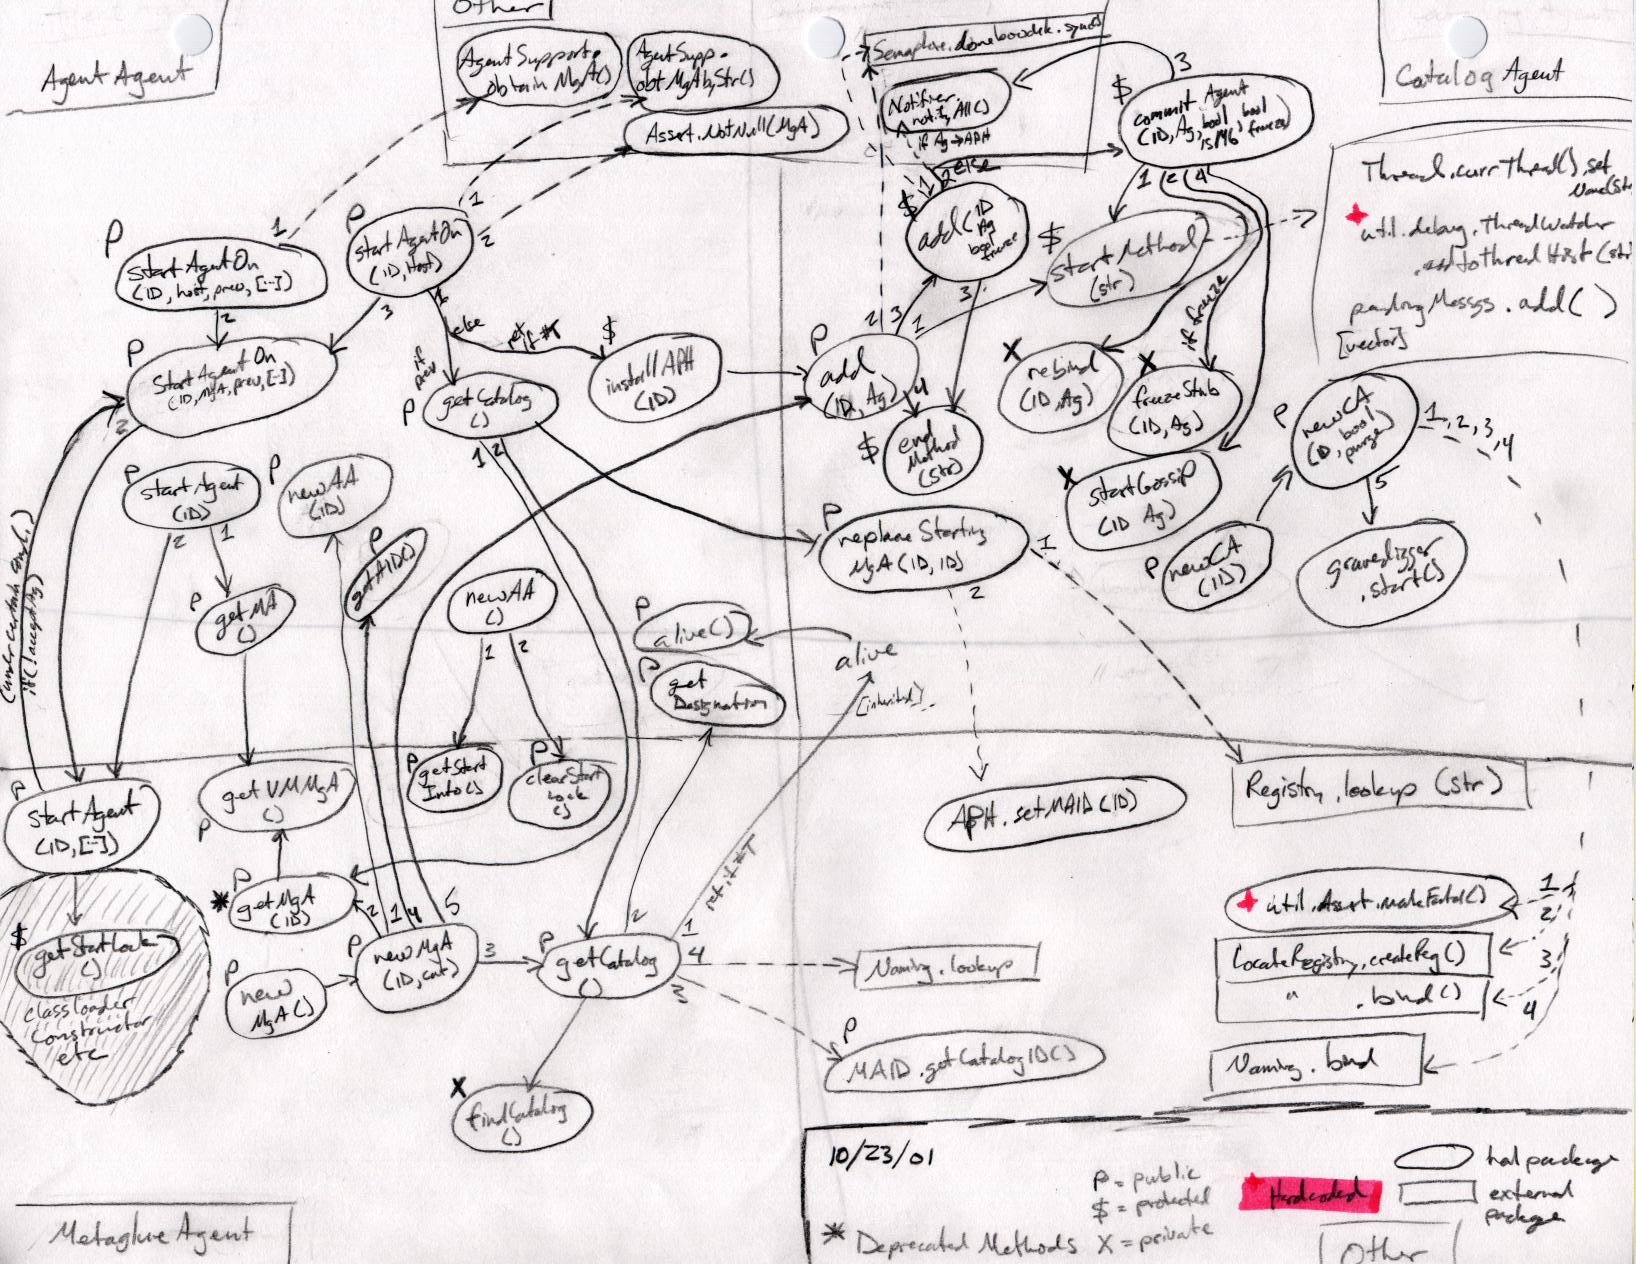 Other
Agent Agent
AgentSupport.
obtain MgA()
AgentSupp.
obtMgAbyStr()
Assert.NotNull(MgA)
Notifier
notifyAll()
if Ag→APH
else
$
3
commit Agent
(ID, Ag, bool, bool
freeze)
Catalog Agent
Thread.currThread().set
util.debug.ThreadWatcher
pendingMessgs.add( )
[vector]
P
1
startAgentOn
(ID, host, prev, [...])
2
P
1
startAgentOn
(ID, Host)
2
3
else
if
prev
ret if ≠T
P
StartAgentOn
(ID, MgA, prev, [...])
2
$
installAPH
(ID)
P
getCatalog
()
1 2
P
add
(ID, Ag)
2 3
1
4
$
1 2
add(ID
Ag
bool
freeze
3
$
startMethod
(str)
1 2 4
if freeze
$
end
Method
(str)
X
rebind
(ID, Ag)
X
freezeStub
(ID, Ag)
X
startGossip
(ID Ag)
P
newCA
(ID, bool
purge)
1, 2, 3, 4
5
P
newCA
(ID)
gravedigger
.start()
P
startAgent
(ID)
2 1
P
newAA
(ID)
P
getAID()
P
getMA
()
newAA
()
1 2
P
alive()
alive
(inherited)
P
get
Designation
P
MgA(ID, ID)
1
2
if(!acceptAg)
P
startAgent
(ID, [...])
getVMMgA
()
P
P
getStart
Info()
P
clearStart
Lock
()
APH.setMAID(ID)
Registry.lookup (str)
* P
getMgA
(ID)
$
getStartLock
()
classloader
constructor
etc
P
new
MgA()
P
newMgA
(ID, cnt)
2 1 4 5
3
P
getCatalog
()
2
1
4
3
ret if ≠T
Naming.lookup
P
MAID.getCatalogID()
X
findCatalog
()
util.Assert.makeFatal()
1
2
LocateRegistry.createReg()
3
" .bind()
4
Naming.bind
10/23/01
P = public
$ = protected
X = private
* Deprecated Methods
Hardcoded
hal package
external
package
Metaglue Agent
Other